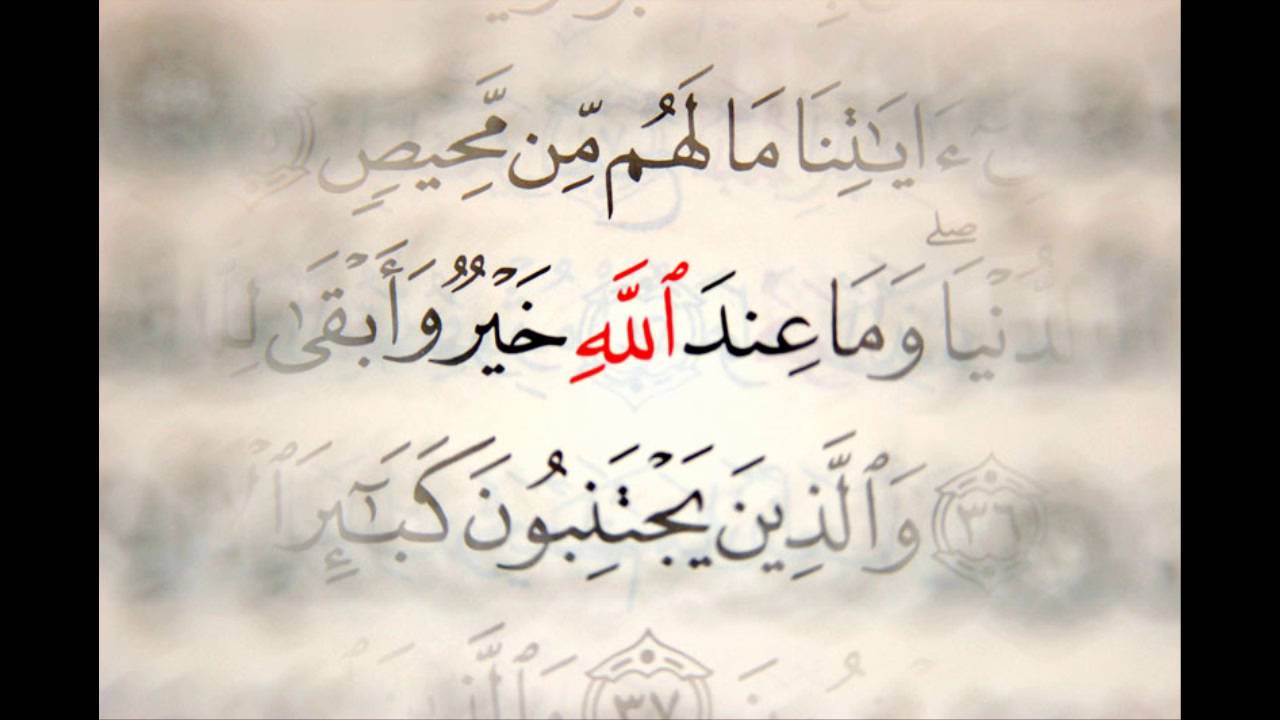 ءَايَٰتِنَا مَا لَهُم مِّن مَّحِيصٍ
ٱلدُّنْيَا ۖ وَمَا عِندَ ٱللَّهِ خَيْرٌ وَأَبْقَىٰ
٣٦ وَٱلَّذِينَ يَجْتَنِبُونَ كَبَـٰٓئِرَ
٣٧ وَٱلَّذِينَ